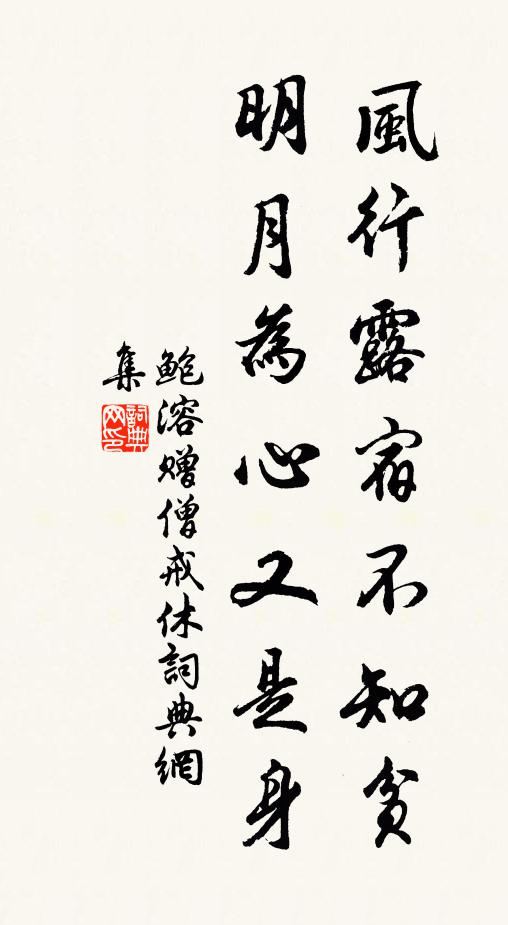 風行露宿不知貧
明月為心又是身
鮑溶贈僧戒休詞典網
集
詞典
网印